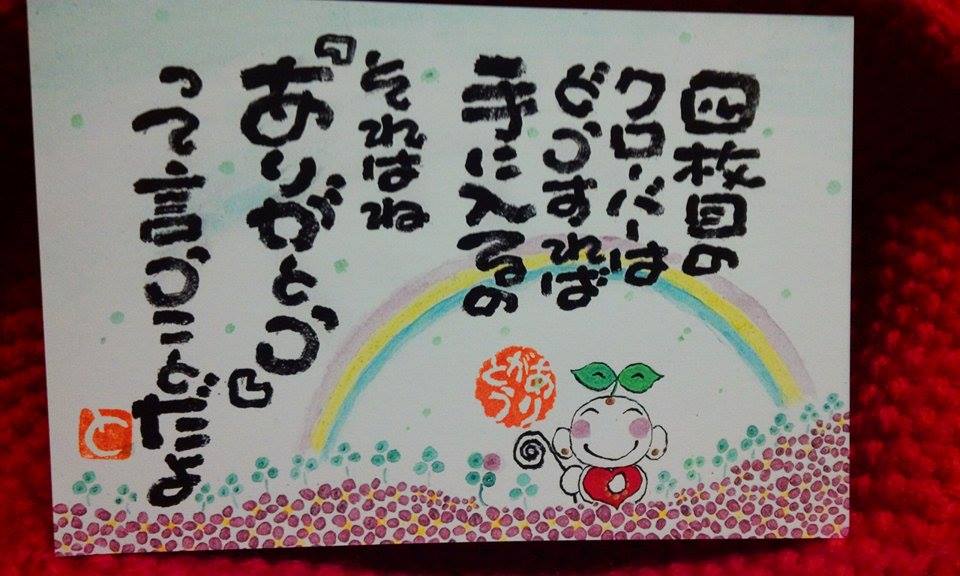 四枚目の
クローバーは
どうすれば
手に入るの
それはね
『ありがとう』
って言うことだよ
あり
が
とう
と